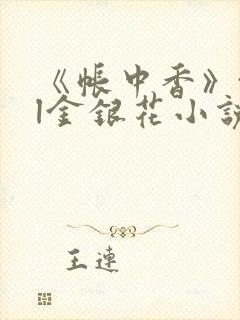 《帐中香》
|金银花小説
王連